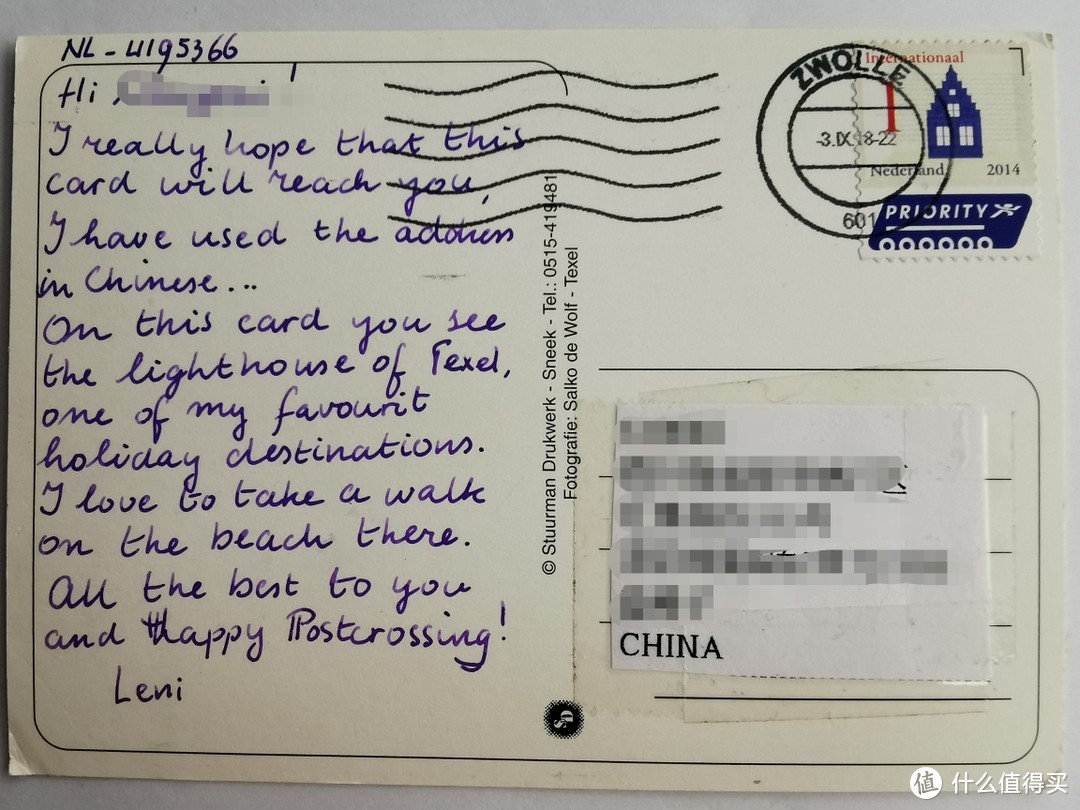 NL-4195366
Hi, !
I really hope that this
card will reach you,
I have used the address
in Chinese...
On this card you see
the lighthouse of Texel,
one of my favourit
holiday destinations.
I love to take a walk
on the beach there.
All the best to you
and Happy Postcrossing!
Leni
© Stuurman Drukwerk - Sneek - Tel.: 0515-419481
Fotografie: Salko de Wolf - Texel
SD
ZWOLLE
-3.IX.18-22
601
Internationaal
1
Nederland 2014
PRIORITY
CHINA
值 什么值得买